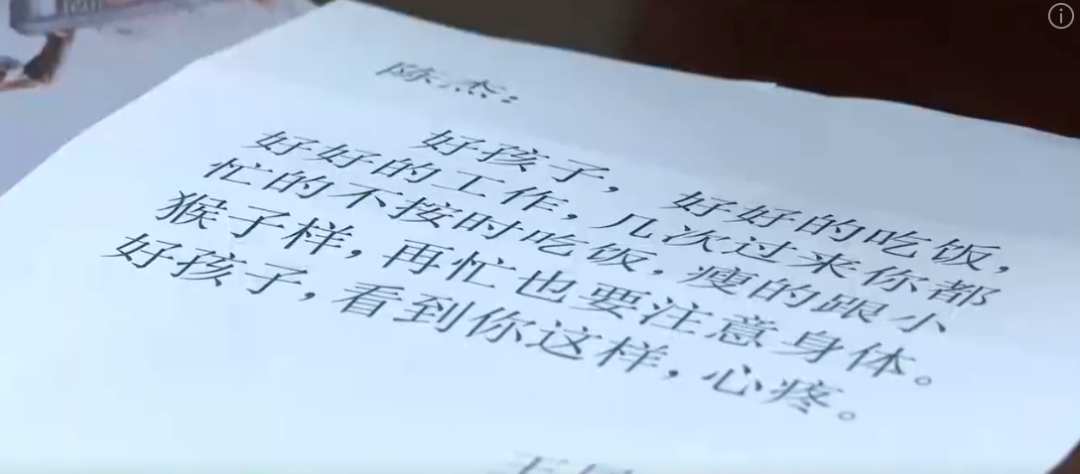 陈杰：
好孩子，好好的吃饭，
好好的工作，几次过来你都
忙的不按时吃饭，瘦的跟小
猴子样，再忙也要注意身体。
好孩子，看到你这样，心疼。